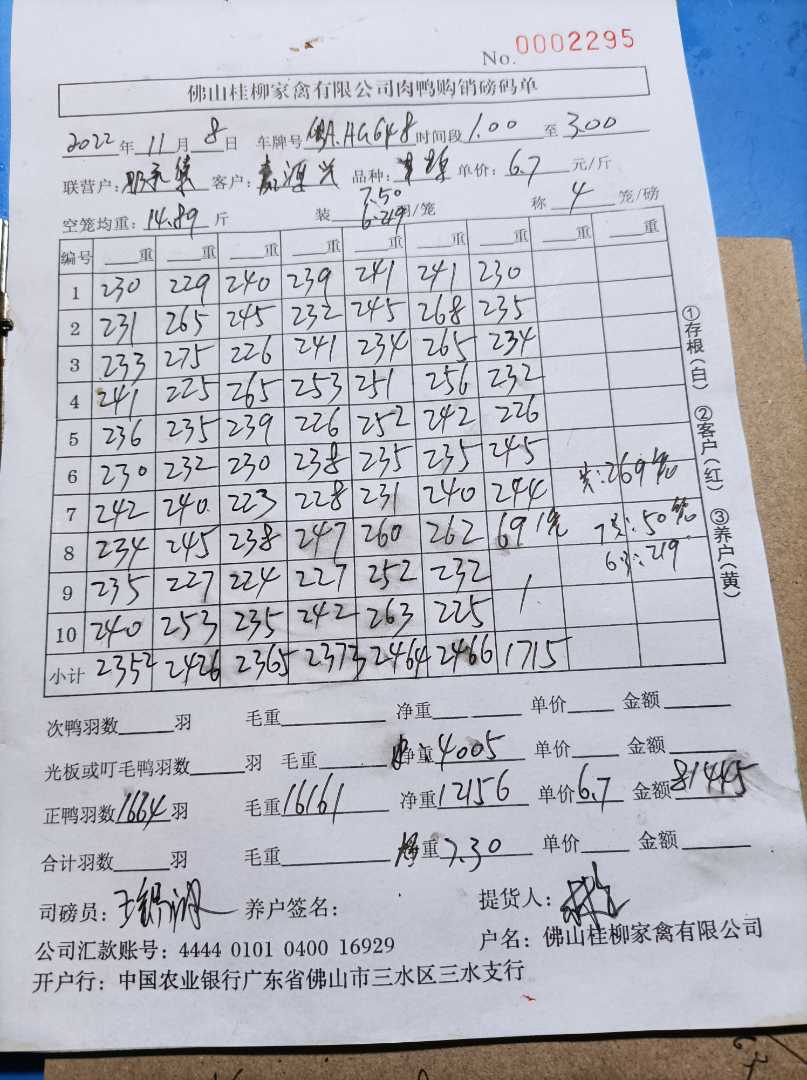 No. 0002295
佛山桂柳家禽有限公司肉鸭购销磅码单
2022年11月8日 车牌号 A.HG648 时间段 1.00 至 3.00
联营户: 客户: 源兴 品种: 单价: 6.7 元/斤
空笼均重: 14.89 斤 装 7.50 6.219 /笼 称 4 笼/磅
编号 重 重 重 重 重 重 重 重 重
1 230 229 240 239 241 241 230
2 231 265 245 232 245 268 235
3 233 275 226 241 234 265 234
4 241 225 265 253 251 256 232
5 236 235 239 226 252 242 226
6 230 232 230 238 235 235 245
7 242 240 223 228 231 240 244
8 234 245 238 247 260 262 69 1笼
9 235 227 224 227 252 232
10 240 253 235 242 263 225
小计 2352 2426 2365 2373 2464 2466 1715
共: 269笼
7只: 50笼
6只: 219
①存根(白) ②客户(红) ③养户(黄)
次鸭羽数 羽 毛重 净重 单价 金额
光板或叮毛鸭羽数 羽 毛重 净重 4005 单价 金额
正鸭羽数 1664 羽 毛重 16161 净重 12156 单价 6.7 金额 81445
合计羽数 羽 毛重 重 7.30 单价 金额
司磅员: 养户签名: 提货人:
公司汇款账号: 4444 0101 0400 16929 户名: 佛山桂柳家禽有限公司
开户行: 中国农业银行广东省佛山市三水区三水支行